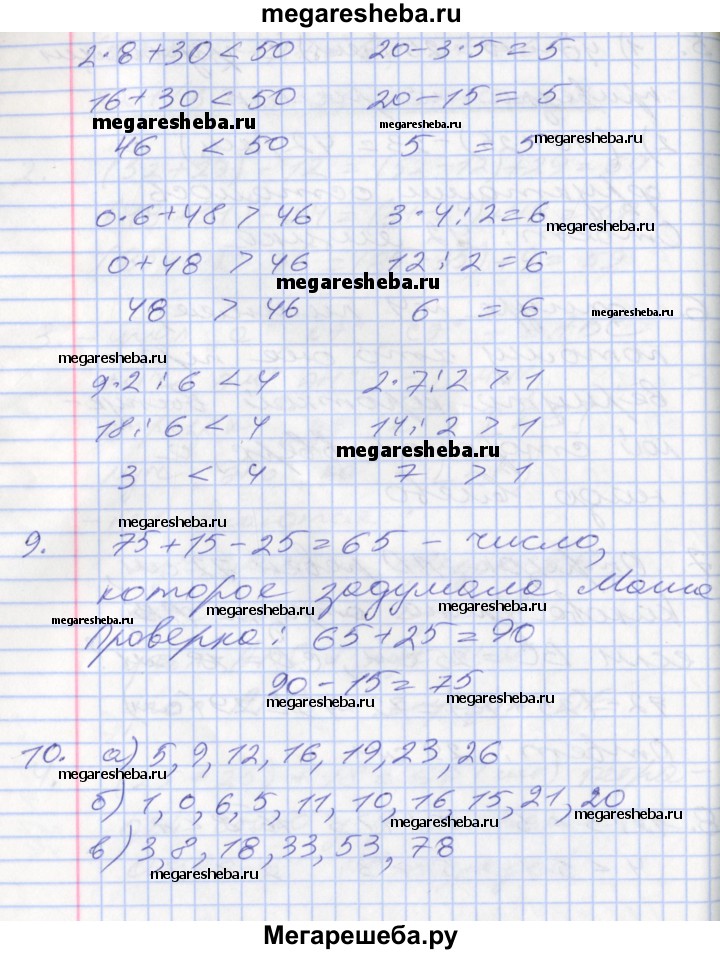 megaresheba.ru
2·8+30<50 20-3·5=5
16+30<50 20-15=5
megaresheba.ru megaresheba.ru megaresheba.ru
46 < 50 5 = 5
0·6+48>46 3·4:2=6
megaresheba.ru
0+48 >46 12:2=6
megaresheba.ru
48 > 46 6 = 6
megaresheba.ru
megaresheba.ru
9·2:6<4 2·7:2>1
18:6<4 14:2>1
megaresheba.ru
3 < 4 7 > 1
megaresheba.ru
9. 75+15-25=65 - число,
которое задумала Маша
megaresheba.ru megaresheba.ru megaresheba.ru
Проверка: 65+25=90
90-15=75
megaresheba.ru megaresheba.ru
10. а) 5, 9, 12, 16, 19, 23, 26
megaresheba.ru
б) 1, 0, 6, 5, 11, 10, 16, 15, 21, 20
megaresheba.ru megaresheba.ru
в) 3, 8, 18, 33, 53, 78
megaresheba.ru
Мегарешеба.ру